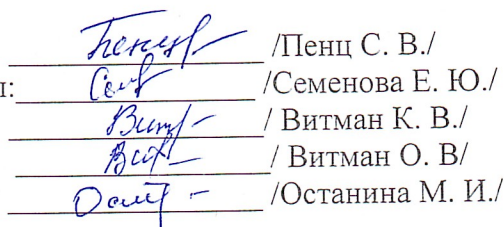 /Пенц С. В./
:/Семенова Е. Ю./
/ Витман К. В./
/ Витман О. В/
/Останина М. И./